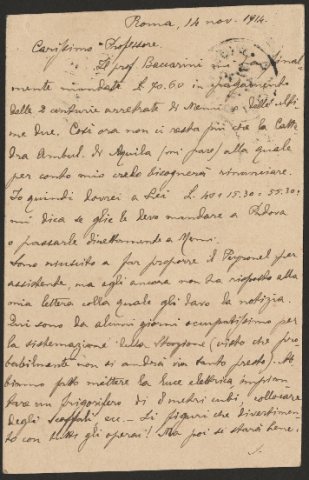 Roma, 14 nov. 1914.
Carissimo Professore.
Il prof. Baccarini mi
mente mandate £. 70.60 in pagamento
delle 2 centurie arretrate di
me due. Così ora non ci resta più che la Catte
dra Ambul. di Aquila (mi pare) alla quale
per conto mio credo bisognerà rinunciare.
Io quindi dovrei a Lei £. 40+15.30=55.30:
mi dica se glie le devo mandare a Padova
o passarle direttamente a
Sono riuscito a far proporre il Peyronel per
assistente, ma egli ancora non ha risposto alla
mia lettera colla quale gli davo la notizia.
Qui sono da alcuni giorni occupatissimo per
la sistemazione della Stazione (visto che pro
babilmente non si andrà via tanto presto). Ab
biamo fatto mettere la luce elettrica, impian
tare un frigorifero di 8 metri cubi, collocare
degli scaffali, ecc. - Si figuri che divertimen
to con tutti gli operai! Ma poi si starà bene.